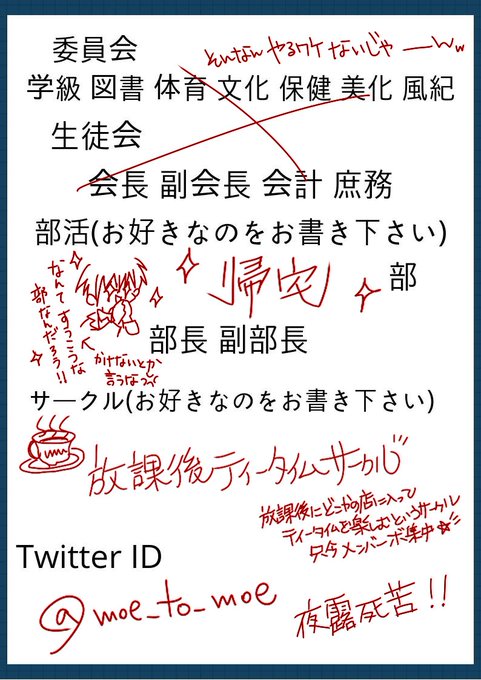 委員会
そんなんやるワケないじゃーんw
学級 図書 体育 文化 保健 美化 風紀
生徒会
会長 副会長 会計 庶務
部活(お好きなのをお書き下さい)
帰宅
部
なんてすっこうな
部なんだろう!!
かけないとか
言うなっ
部長 副部長
サークル(お好きなのをお書き下さい)
放課後ティータイムサークル
放課後にどこかの店に入って
ティータイムを楽しむというサークル
只今メンバーボ集中☆
Twitter ID
@moe_to_moe
夜露死苦!!